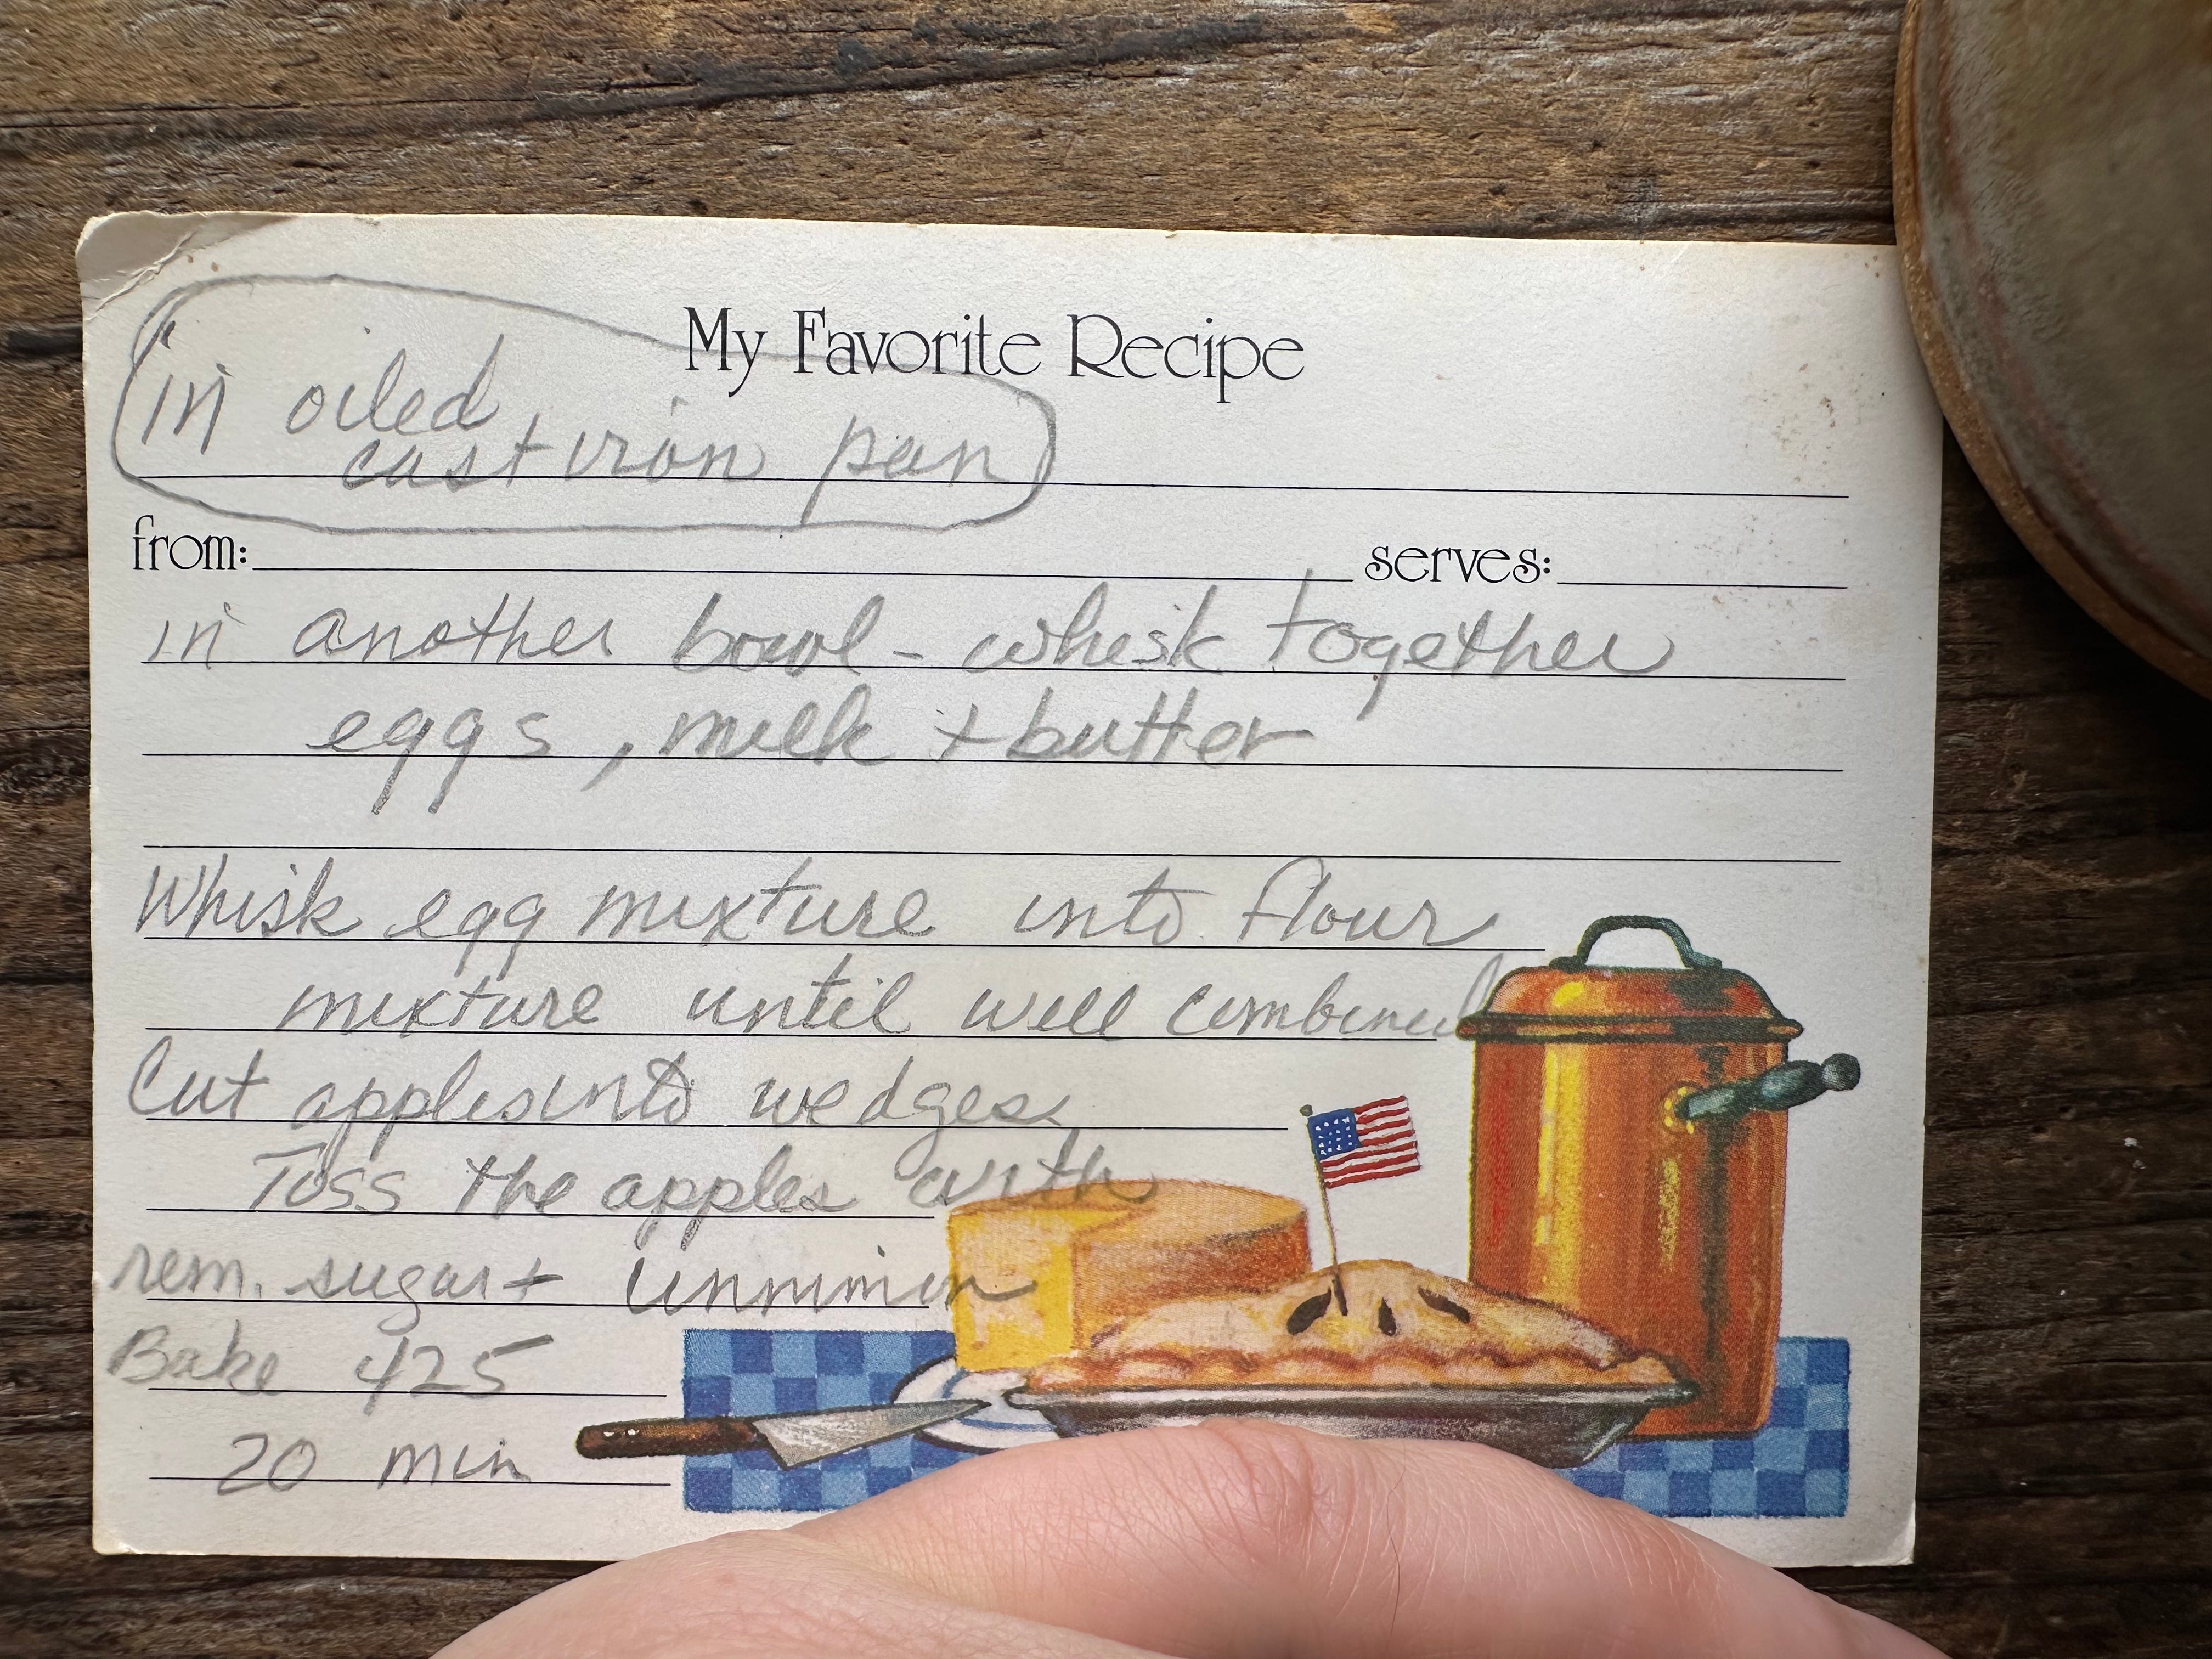 My Favorite Recipe
in oiled
cast iron pan
from: serves:
in another bowl - whisk together
eggs, milk + butter
Whisk egg mixture into flour
mixture until well combined
Cut apples into wedges
Toss the apples with
rem. sugar + cinnimin
Bake 425
20 min